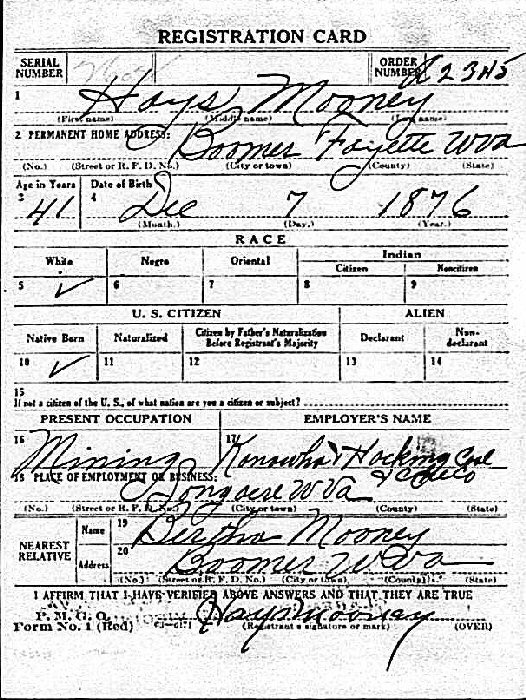 REGISTRATION CARD
SERIAL NUMBER ORDER NUMBER A2345
1 Hays Mooney
(First name) (Middle name) (Last name)
2 PERMANENT HOME ADDRESS: Boomer Fayette W Va
(No.) (Street or R. F. D. No.) (City or town) (County) (State)
Age in Years Date of Birth
3 41 4 Dec 7 1876
(Month.) (Day.) (Year.)
RACE
White Negro Oriental Indian
Citizen Noncitizen
5 ✓ 6 7 8 9
U. S. CITIZEN ALIEN
Native Born Naturalized Citizen by Father's Naturalization Before Registrant's Majority Declarant Non-declarant
10 ✓ 11 12 13 14
15
If not a citizen of the U. S., of what nation are you a citizen or subject?
PRESENT OCCUPATION EMPLOYER'S NAME
16 Mining 17 Kanawha & Hocking Coal
& C Co
18 PLACE OF EMPLOYMENT OR BUSINESS: Longacre W Va
(No.) (Street or R. F. D. No.) (City or town) (County) (State)
NEAREST RELATIVE
Name 19 Bertha Mooney
Address 20 Boomer W Va
(No.) (Street or R. F. D. No.) (City or town) (County) (State)
I AFFIRM THAT I HAVE VERIFIED ABOVE ANSWERS AND THAT THEY ARE TRUE
P. M. G. O.
Form No. 1 (Red) Hays Mooney
(Registrant's signature or mark) (OVER)